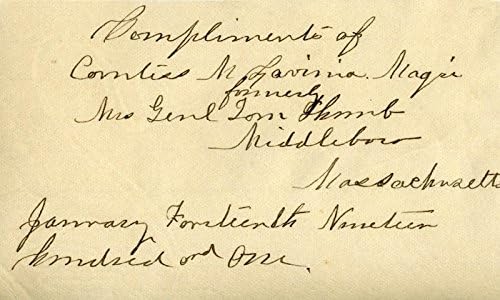 Compliments of
Comtiss M Lavinia Magri
formerly
Mrs Genl Tom Thumb
Middleboro
Massachusetts
January Forteenth Nineteen
hundred ond One.